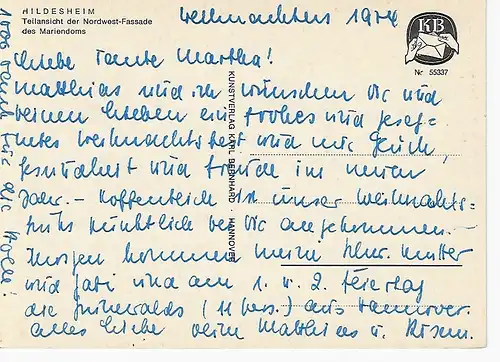 HILDESHEIM
Teilansicht der Nordwest-Fassade
des Mariendoms
Weihnachten 1974
KB
Nr. 55337
Liebe Tante Martha!
Matthias und ich wünschen Dir und
Deinen Lieben ein frohes und geseg-
netes Weihnachtsfest und viel Glück,
Gesundheit und Freude im neuen
Jahr. – Hoffentlich ist unser Weihnachts-
gruß pünktlich bei Dir angekommen. –
Morgen kommen meine Schw. Mutter
und Gabi und am 1. u. 2. Feiertag
die Grünwalds (11 Pers.) aus Hannover.
Alles Liebe Deine Matthias u.
1000 Dank für die Karte!
KUNSTVERLAG KARL BERNHARD · HANNOVER